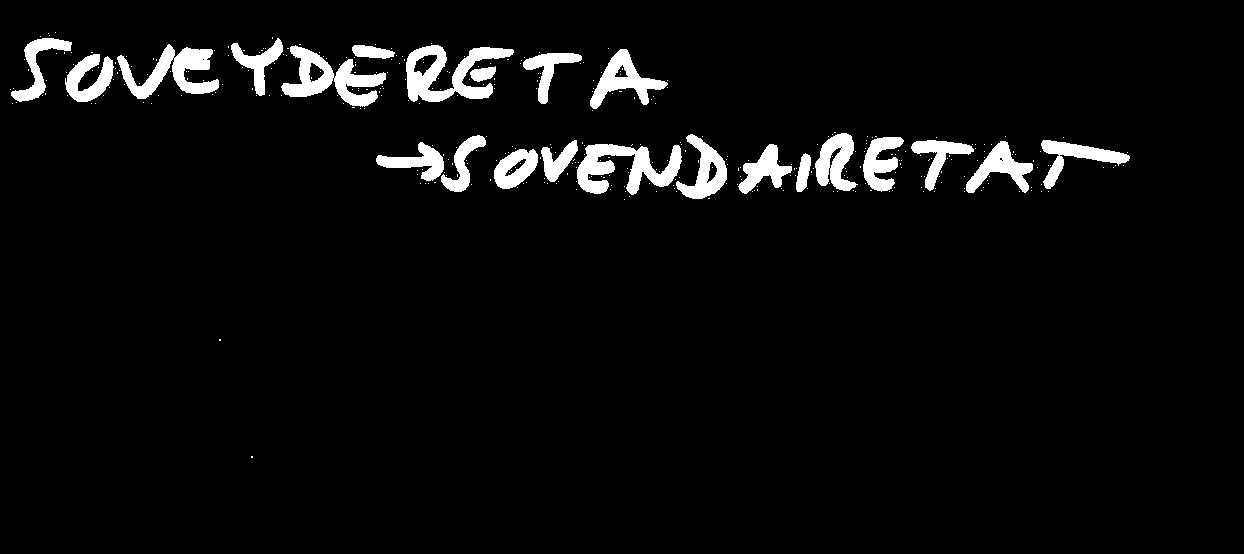 SOVEYDERETA
→SOVENDAIRETAT